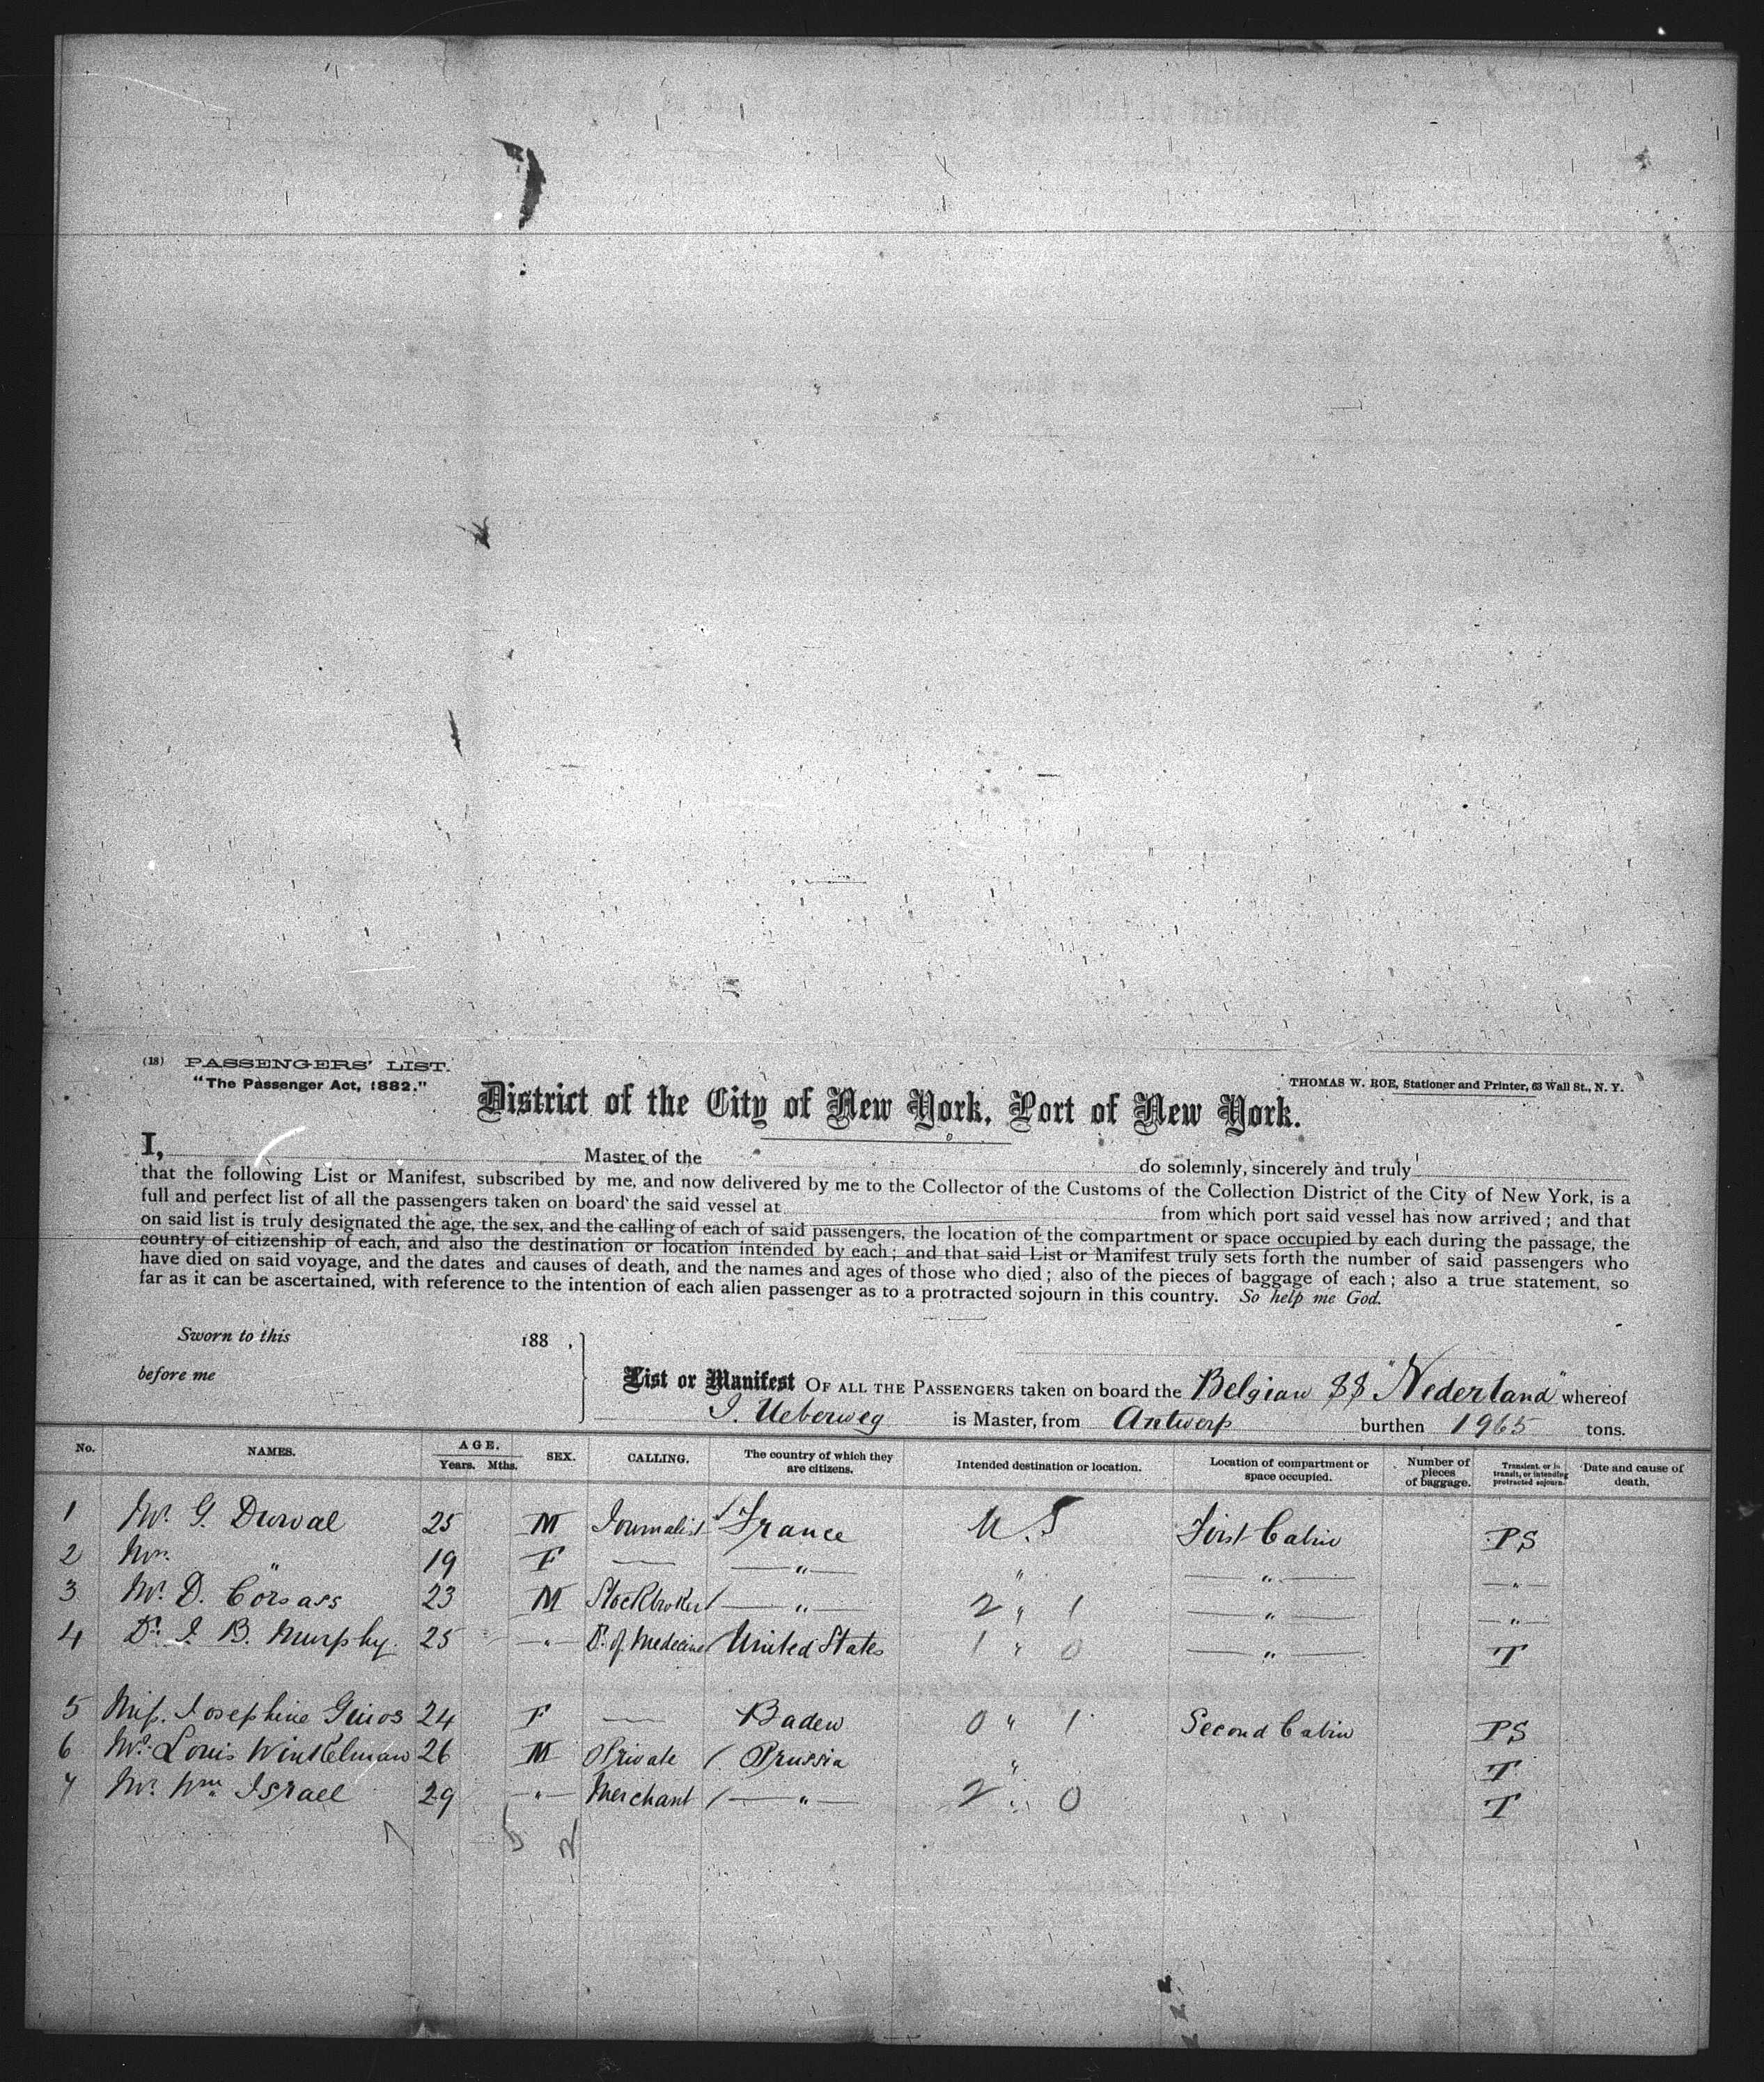 (18) PASSENGERS' LIST.
"The Passenger Act, 1882."
THOMAS W. ROE, Stationer and Printer, 63 Wall St., N. Y.
District of the City of New York, Port of New York.
I, Master of the do solemnly, sincerely and truly
that the following List or Manifest, subscribed by me, and now delivered by me to the Collector of the Customs of the Collection District of the City of New York, is a
full and perfect list of all the passengers taken on board the said vessel at from which port said vessel has now arrived; and that
on said list is truly designated the age, the sex, and the calling of each of said passengers, the location of the compartment or space occupied by each during the passage, the
country of citizenship of each, and also the destination or location intended by each; and that said List or Manifest truly sets forth the number of said passengers who
have died on said voyage, and the dates and causes of death, and the names and ages of those who died; also of the pieces of baggage of each; also a true statement, so
far as it can be ascertained, with reference to the intention of each alien passenger as to a protracted sojourn in this country. So help me God.
Sworn to this 188 .
before me
List or Manifest OF ALL THE PASSENGERS taken on board the Belgian SS "Nederland" whereof
J. Ueberweg is Master, from Antwerp burthen 1965 tons.
No. NAMES. AGE. Years. Mths. SEX. CALLING. The country of which they are citizens. Intended destination or location. Location of compartment or space occupied. Number of pieces of baggage. Transient, or in transit, or intending protracted sojourn. Date and cause of death.
1 Mr. G. Durval 25 M Journalist / France U.S First Cabin PS
2 Mrs. " 19 F — — " — " — " — — " —
3 Mr. D. Corsass 23 M Stockbroker / — " — 2 " 1 — " — — " —
4 Dr. J. B. Murphy. 25 — " — Dr. of Medecine / United States 1 " 0 — " — T
5 Miss. Josephine 24 F — Baden 0 " 1 Second Cabin PS
6 Mr. Louis Winkelman 26 M Private / Prussia " T
7 Mr. Wm. Israel 29 — " — Merchant / — " — 2 " 0 T
7 5 2